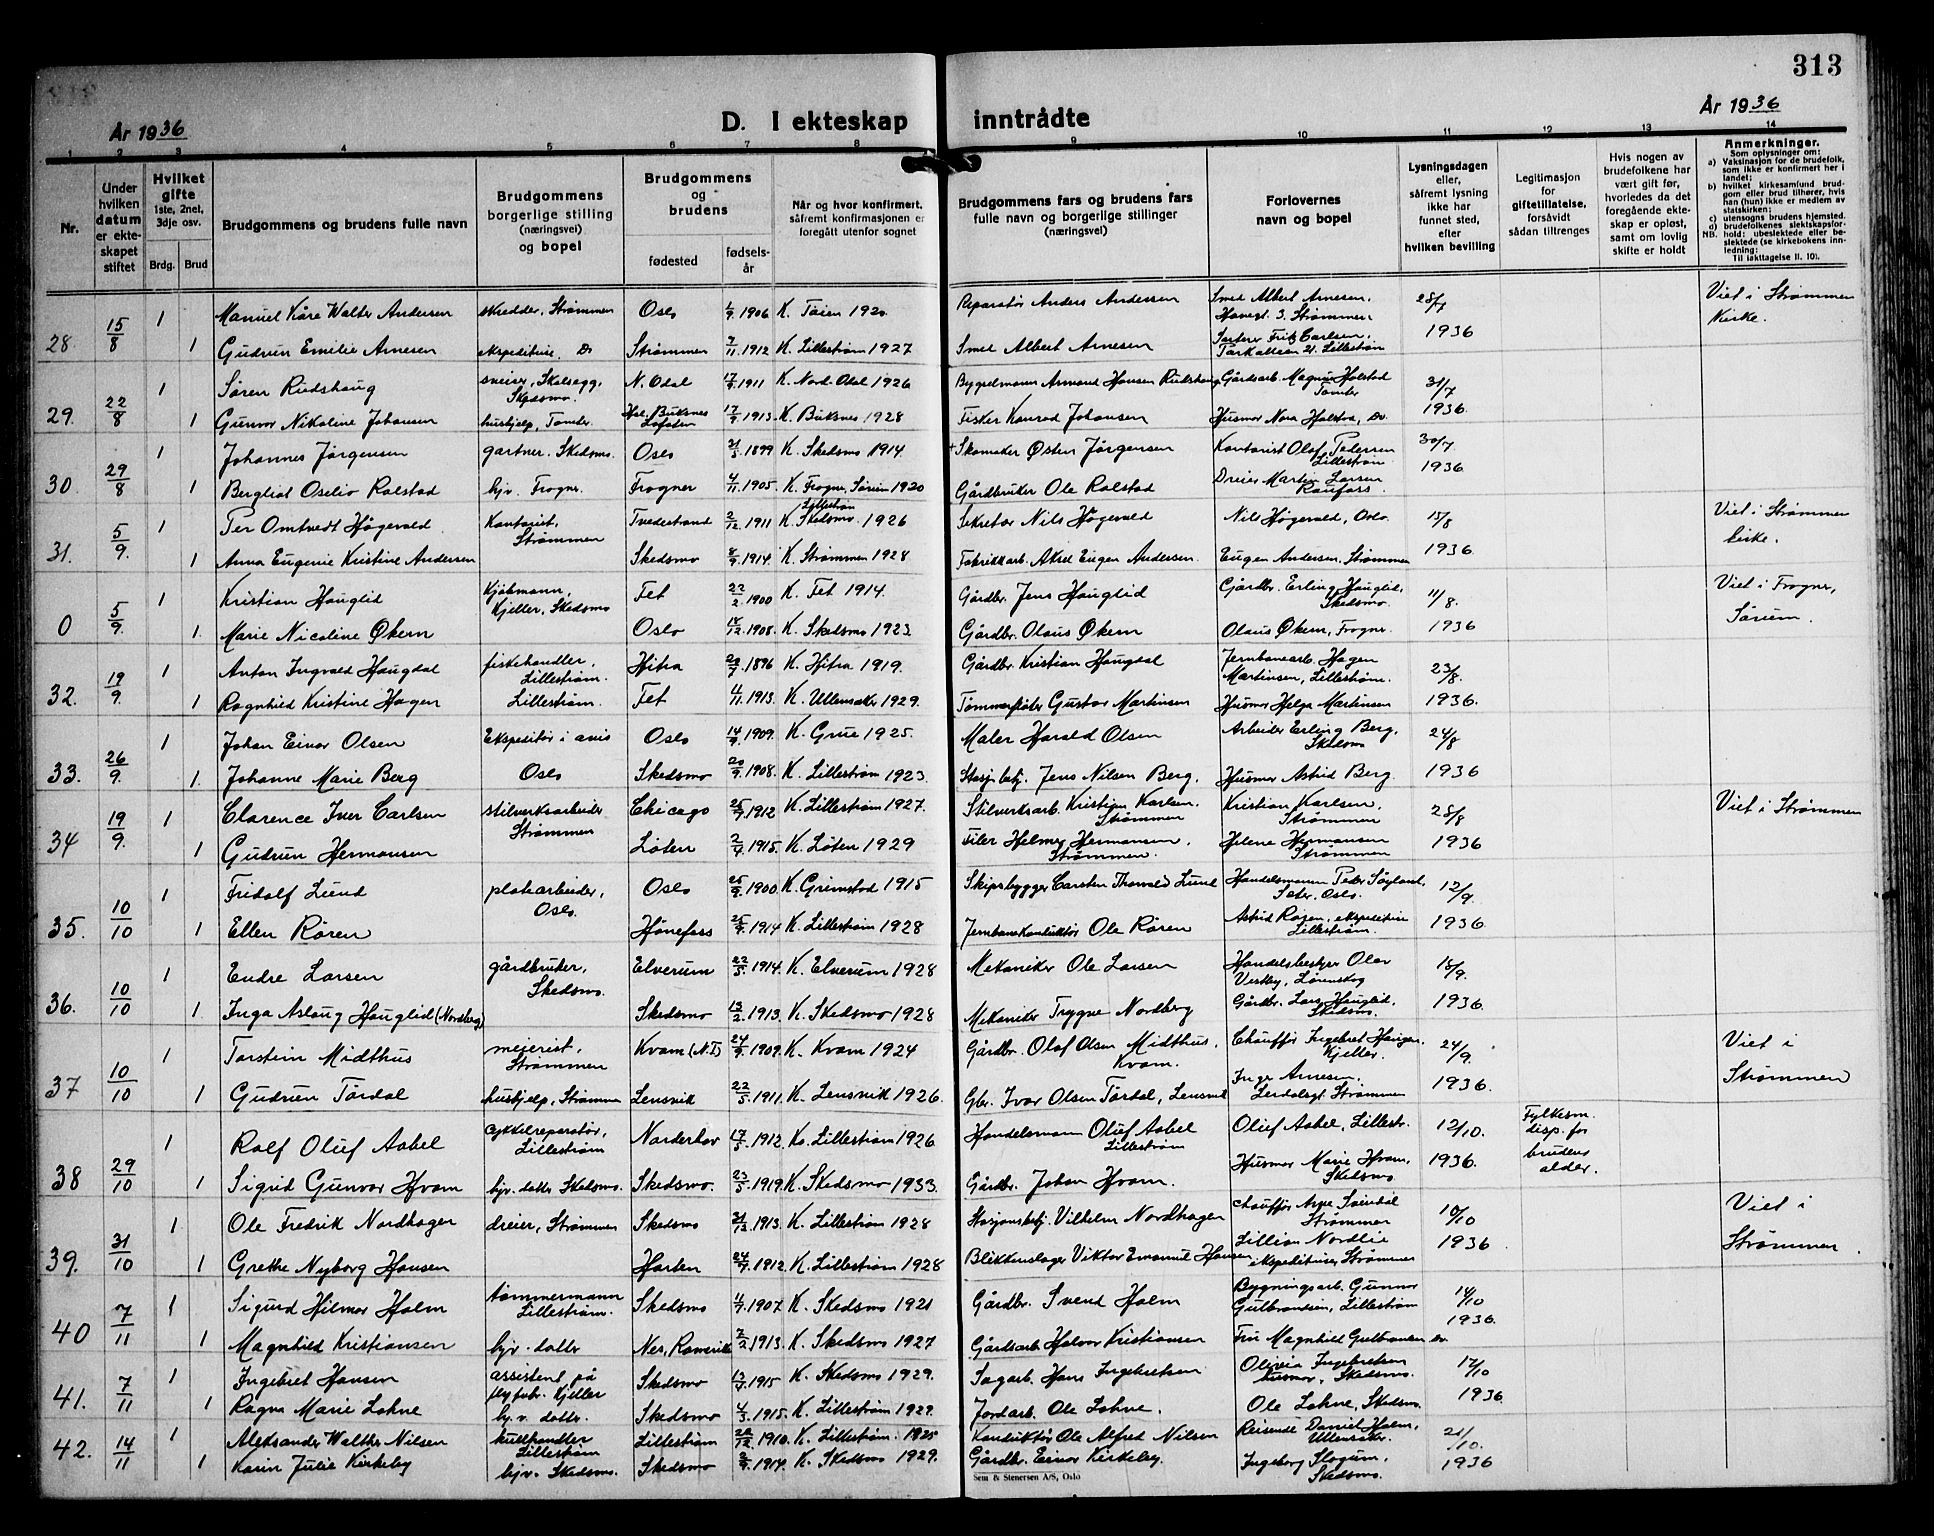 313
År 1936
D. I ekteskap inntrådte
År 1936
1 2 3 4 5 6 7 8 9 10 11 12 13 14
Nr.
Under hvilken datum er ekteskapet stiftet
Hvilket gifte 1ste, 2net, 3dje osv.
Brdg. Brud
Brudgommens og brudens fulle navn
Brudgommens borgerlige stilling (næringsvei) og bopel
Brudgommens og brudens
fødested
fødsels-år
Når og hvor konfirmert, såfremt konfirmasjonen er foregått utenfor sognet
Brudgommens fars og brudens fars fulle navn og borgerlige stillinger (næringsvei)
Forlovernes navn og bopel
Lysningsdagen eller, såfremt lysning ikke har funnet sted, efter hvilken bevilling
Legitimasjon for giftetillatelse, forsåvidt sådan tiltrenges
Hvis nogen av brudefolkene har vært gift før, hvorledes da det foregående ekteskap er opløst, samt om lovlig skifte er holdt
Anmerkninger.
Som oplysninger om:
a) Vaksinasjon for de brudefolk, som ikke er konfirmert her i landet;
b) hvilket kirkesamfund brudgom eller brud tilhører, hvis han (hun) ikke er medlem av statskirken;
c) utensogns brudens hjemsted.
d) brudefolkenes slektskapsforhold: ubeslektede eller beslektede (se kirkebokens innledning;
NB. Til iakttagelse II. 10).
28. 15/8 1 Manuel Kåre Walter Andersen skredder, Strømmen Oslo 1906 K. Tøien 1920 Reparatør Anders Andersen Smed Albert Arnesen, Strømmen 28/7 Viet i Strømmen Kirke.
1 Gudrun Emilie Arnesen ekspeditrise, Do Strømmen 1912 K. Lillestrøm 1927 Smed Albert Arnesen Fritz Carlsen, Parkalleen 21, Lillestrøm 1936
29. 22/8 1 Søren Rudshaug sveiser, Skedsmo. N. Odal 1911 K. Nord-Odal 1926 Armand Hansen Rudshaug Gårdsarb. Magnus Holstad Tomter 31/7
1 Gunvor Nikoline Johansen hushjelp, Tomter Buksnes Lofoten 17/9 1913 K. Buksnes 1928 Fisker Konrad Johansen Husmor Nora Holstad, Do. 1936.
30. 29/8 1 Johannes Jørgensen gartner, Skedsmo. Oslo 1899 K. Skedsmo 1914 + Skomaker Østen Jørgensen Kontorist Olaf Pedersen Lillestrøm 30/7
1 Bergliot Oselio Rolstad hjv. Frogner Frogner 4/11 1905 K. Frogner, Sørum 1920 Gårdbruker Ole Rolstad Dreier Martin Larsen Raufoss. 1936
31. 5/9. 1 Per Omtvedt Høgevald Kontorist, Strømmen Tvedestrand 2/12 1911 K. Skedsmo Lillestrøm 1926 Sekretær Nils Høgevald Nils Høgevald, Oslo. 15/8 Viet i Strømmen kirke.
1 Anna Eugenie Kristine Andersen Skedsmo 1914 K. Strømmen 1928 Fabrikkarb. Aksel Eugen Andersen Eugen Andersen, Strømmen 1936
0 5/9. 1 Kristian Hauglid Kjøbmann, Kjeller, Skedsmo Fet 22/2 1900 K. Fet 1914. Gårdbr. Jens Hauglid Gårdbr. Erling Hauglid, Skedsmo. 11/8. Viet i Frogner, Sørum.
1. Marie Nicoline Økern Oslo 1908. K. Skedsmo 1923 Gårdbr. Olaus Økern Olaus Økern, Frogner 1936
32. 19/9. 1 Anton Ingvald Haugdal fiskehandler, Lillestrøm. Hitra 1896 K. Hitra 1919. Gårdbr. Kristian Haugdal Jernbanearb. Hagen Martinsen, Lillestrøm. 23/8.
1 Ragnhild Kristine Hagen Lillestrøm. Fet 4/11 1913. K. Ullensaker 1929. Tømmerfløter Gustav Martinsen Husmor Helga Martinsen 1936.
33. 26/9. 1 Johan Einar Olsen Ekspeditør i avis Oslo 1909. K. Grue 1925. Maler Harald Olsen Arbeider Erling Berg, Skedsmo 24/8
1. Johanne Marie Berg Oslo Skedsmo 20/9 1908. K. Lillestrøm 1923. Stasj.betj. Jens Nilsen Berg. Husmor Astrid Berg. 1936
34 19/9. 1 Clarence Iver Carlsen stilverksarbeider Strømmen Chicago 1912 K. Lillestrøm 1927. Stilverksarb. Kristian Karlsen, Strømmen Kristian Karlsen, Strømmen 28/8 Viet i Strømmen
1 Gudrun Hermansen Løten 1915. K. Løten 1929 Filer Helmer Hermansen, Strømmen. Helene Hermansen Strømmen 1936
35. 10/10 1 Fridolf Lund platearbeider, Oslo. Oslo 1900. K. Grimstad 1915 Skipsbygger Carsten Thorvald Lund Handelsmann Peder Søyland, Oslo. 12/9.
1 Ellen Røren Hønefoss 1914 K. Lillestrøm 1928 Jernbanekonduktør Ole Røren Astrid Røren, ekspeditrise Lillestrøm. 1936
36. 10/10 1 Endre Larsen gårdbruker, Skedsmo. Elverum 22/5 1914. K. Elverum 1928 Mekaniker Ole Larsen Handelsbestyrer Olav Vestby, Lørenskog 18/9.
1 Inga Aslaug Hauglid (Nordberg) Skedsmo 13/2 1913. K. Skedsmo 1928 Mekaniker Trygve Nordberg Gårdbr. Lars Hauglid, Skedsmo. 1936
37 10/10 1 Torstein Midthus meierist, Strømmen Kvam (N.T) 24/9 1909. K. Kvam 1924 Gårdbr. Olaf Olsen Midthus, Kvam. Chauffør Ingebret Haugen, Kjeller. 24/9. Viet i Strømmen
1 Gudrun Tørdal hushjelp, Strømmen Lensvik 22/5 1911. K. Lensvik 1926. Gbr. Ivar Olsen Tørdal, Lensvik Inga Arnesen, Strømmen 1936.
38 29/10 1 Rolf Oluf Aabel cykkelreparatør, Lillestrøm Norderhov 17/5 1912. K. Lillestrøm 1926 Handelsmann Oluf Aabel Lillestrøm Oluf Aabel, Lillestr. 12/10. Fylkesm. disp. for brudens alder.
1 Sigrid Gunvor Hvam hjv. datter Skedsmo. Skedsmo. 23/5 1919. K. Skedsmo 1933. Gårdbr. Johan Hvam. Husmor Marie Hvam, Skedsmo 1936.
39. 31/10 1 Ole Fredrik Nordhagen dreier, Strømmen Skedsmo 1913. K. Lillestrøm 1928 Stasjonsbetj. Vilhelm Nordhagen Chauffør Arne Svendal Strømmen 10/10 Viet i Strømmen
1 Grethe Nyborg Hansen Horten 1912. K. Lillestrøm 1928 Blikkenslager Viktor Emanuel Hansen Lillian Nordlie ekspeditrise, Strømmen 1936
40 7/11 1 Sigurd Hilmar Holm tømmermann Lillestrøm. Skedsmo 1907. K. Skedsmo 1921 Gårdbr. Svend Holm Bygningsarb. Gunnar Gulbrandsen, Lillestrøm 14/10
1 Magnhild Kristiansen hjv. datter Nes, Romerike 2/2 1913. K. Skedsmo 1927 Gårdsarb. Halvor Kristiansen Fru Magnhild Gulbransen do 1936.
41. 7/11 1 Ingebret Hansen assistent på flyfabr. Kjeller Skedsmo 1915 K. Skedsmo 1929. Sagarb. Hans Ingebretsen Olivia Ingebretsen husmor, Skedsmo. 17/10
1 Ragna Marie Lohne hj.v. datter. Skedsmo 4/3 1915. K. Lillestrøm 1929. Jordarb. Ole Lohne. Ole Lohne, Skedsmo. 1936
42. 14/11 1 Aleksander Walther Nilsen kullhandler Lillestrøm Lillestrøm 1910. K. Lillestrøm 1925 Konduktør Ole Alfred Nilsen Reisende Daniel Holm, Ullensaker. 21/10.
1 Karin Julie Kirkeby hjv. Skedsmo. Skedsmo 1914. K. Skedsmo 1929. Gårdbr. Einar Kirkeby. Ingeborg Slogum, Skedsmo. 1936
Sem & Stenersen A/S, Oslo